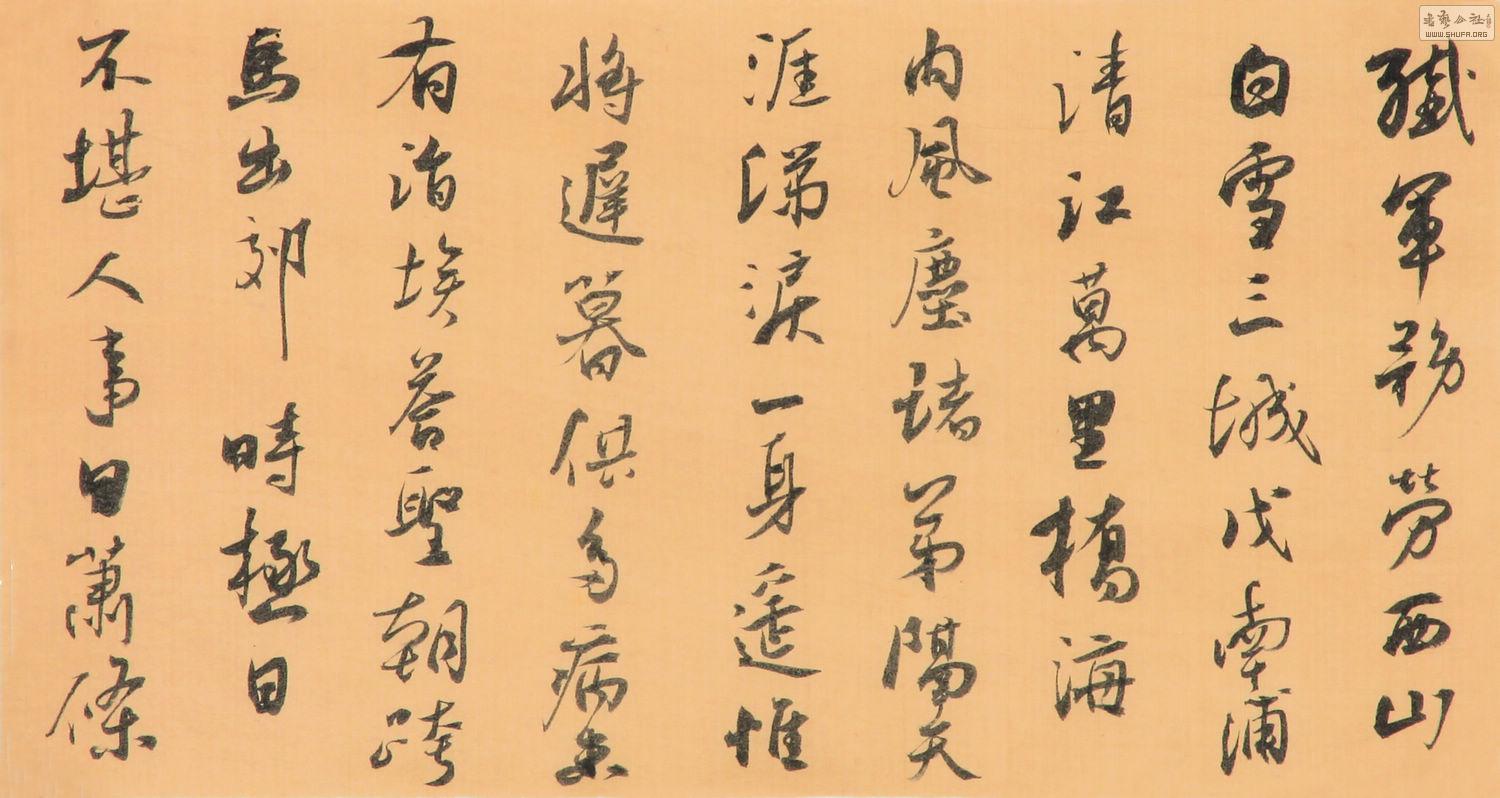 殲軍務勞西山
白雪三城戍南浦
清江萬里橋海
內風塵諸弟隔天
涯涕淚一身遙惟
將遲暮供多病未
有涓埃答聖朝跨
馬出郊時極目
不堪人事日蕭條
書藝公社
WWW.SHUFA.ORG